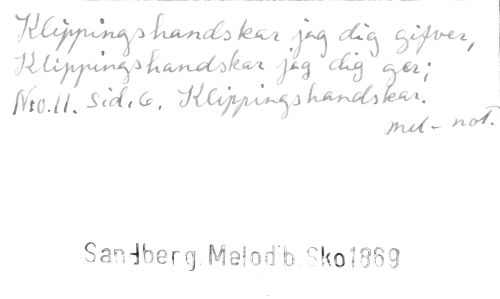 Klippingshandskar jag dig gifver,
Klippingshandskar jag dig ger;
N:o.11. Sid. 6. Klippingshandskar.
mel-not.
Sandberg. Melodib. Sko 1869